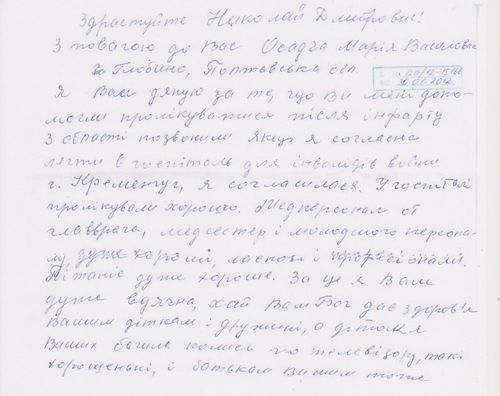 Здраствуйте Николай Дмитрович!
З повагою до Вас Осадча Марія Василовна
Глобино, Полтавська обл.
Я Вам дякую за те, що Ви мені допо-
могли пролікуватися після інфарту
З області позвонили якщо я согласна
лягти в госпіталь для інвалідів войни
г. Кременчуг, я согласилася. У госпіталі
пролікували хорошо. Медперсонал от
главврача, медсестер і молодшого персона-
лу, дуже хороші, ласкові і професіонали.
Пітаніє дуже хороше. За це я Вам
дуже вдячна, хай Вам Бог дає здоров'я
Вашим діткам і дружині, а дітом я
Ваших бачила колись по телевізору, такі
хорошенькі, і батькам Вашим тоже